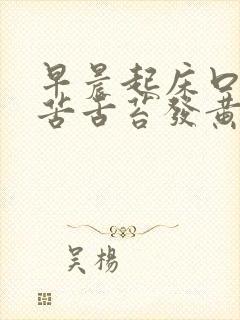 早晨起床口
苦舌苔發黄
吴楊